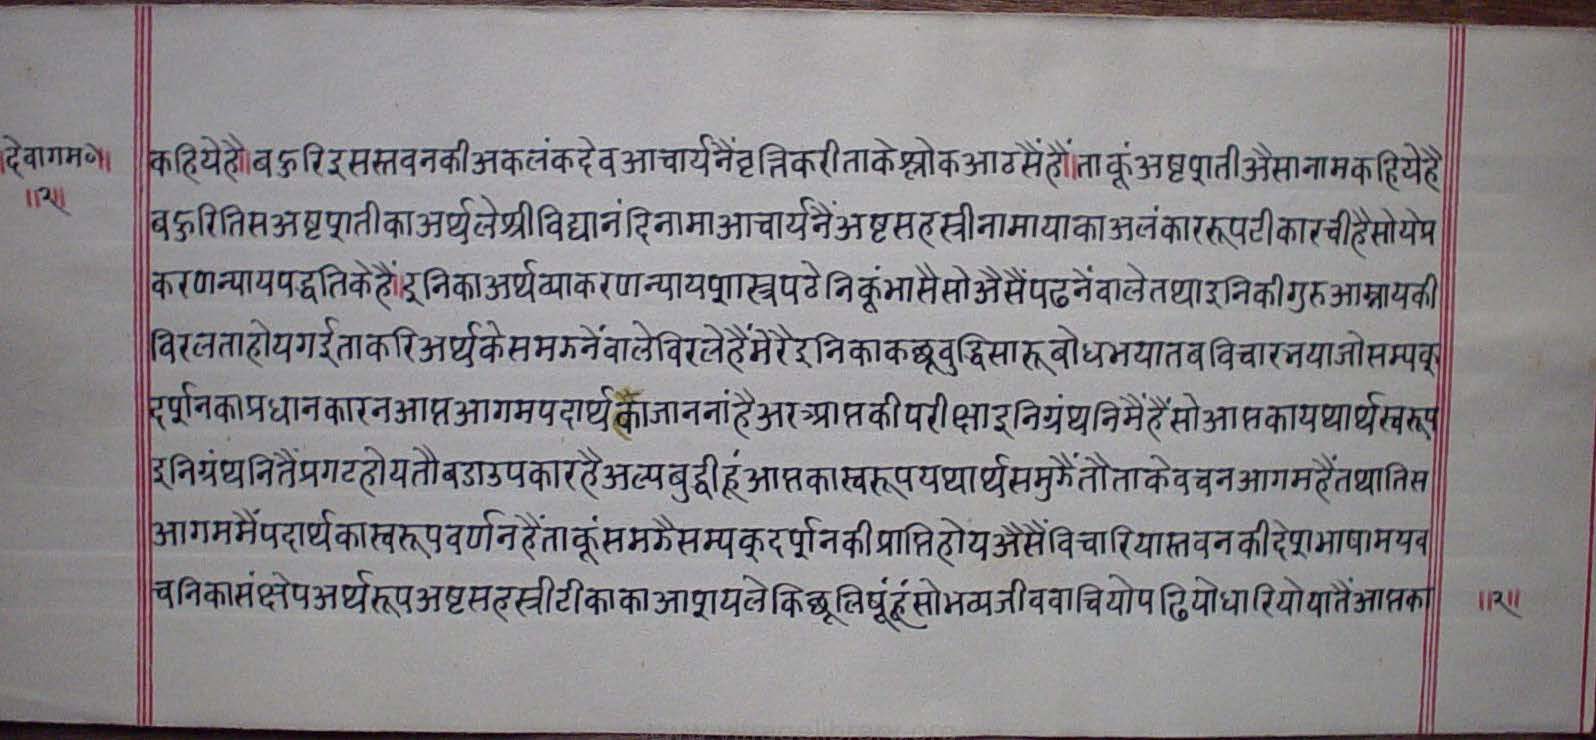 देवागम॰॥
॥२॥
कहियेहै॥बहुरिइसस्तवनकीअकलंकदेवआचार्यनैंवृत्तिकरीताकेश्लोकआठसैंहैं॥ताकूंअष्टशतीअैसानामकहियेहै
बहुरितिसअष्टशतीकाअर्थलेश्रीविद्यानंदिनामाआचार्यनैंअष्टसहस्त्रीनामायाकाअलंकाररूपटीकारचीहैसोयेप्र
करणन्यायपद्धतिकेहैं॥इनिकाअर्थव्याकरणन्यायशास्त्रपढेनिकूंभासैसोअैसैंपढनेंवालेतथाइनिकीगुरुआम्नायकी
विरलताहोयगईताकरिअर्थकेसमझनेंवालेविरलेहैंमेरैइनिकाकछूबुद्धिसारूबोधभयातबविचारभयाजोसम्यक्
दर्शनकाप्रधानकारनआप्तआगमपदार्थकाजाननांहैअरआप्तकीपरीक्षाइनिग्रंथनिमैंहैंसोआप्तकायथार्थस्वरूप
इनिग्रंथनितैंप्रगटहोयतौबडाउपकारहैअल्पबुद्धीहूंआप्तकास्वरूपयथार्थसमुझैंतौताकेवचनआगमहैंतथातिस
आगममैंपदार्थकास्वरूपवर्णनहैंताकूंसमझैसम्यक्दर्शनकीप्राप्तिहोयअैसैंविचारियास्तवनकीदेशभाषामयव
चनिकासंक्षेपअर्थरूपअष्टसहस्त्रीटीकाकाआशयलेकिछूलिषूंहूंसोभव्यजीववाचियोपढियोधारियोयातैंआप्तका
॥२॥